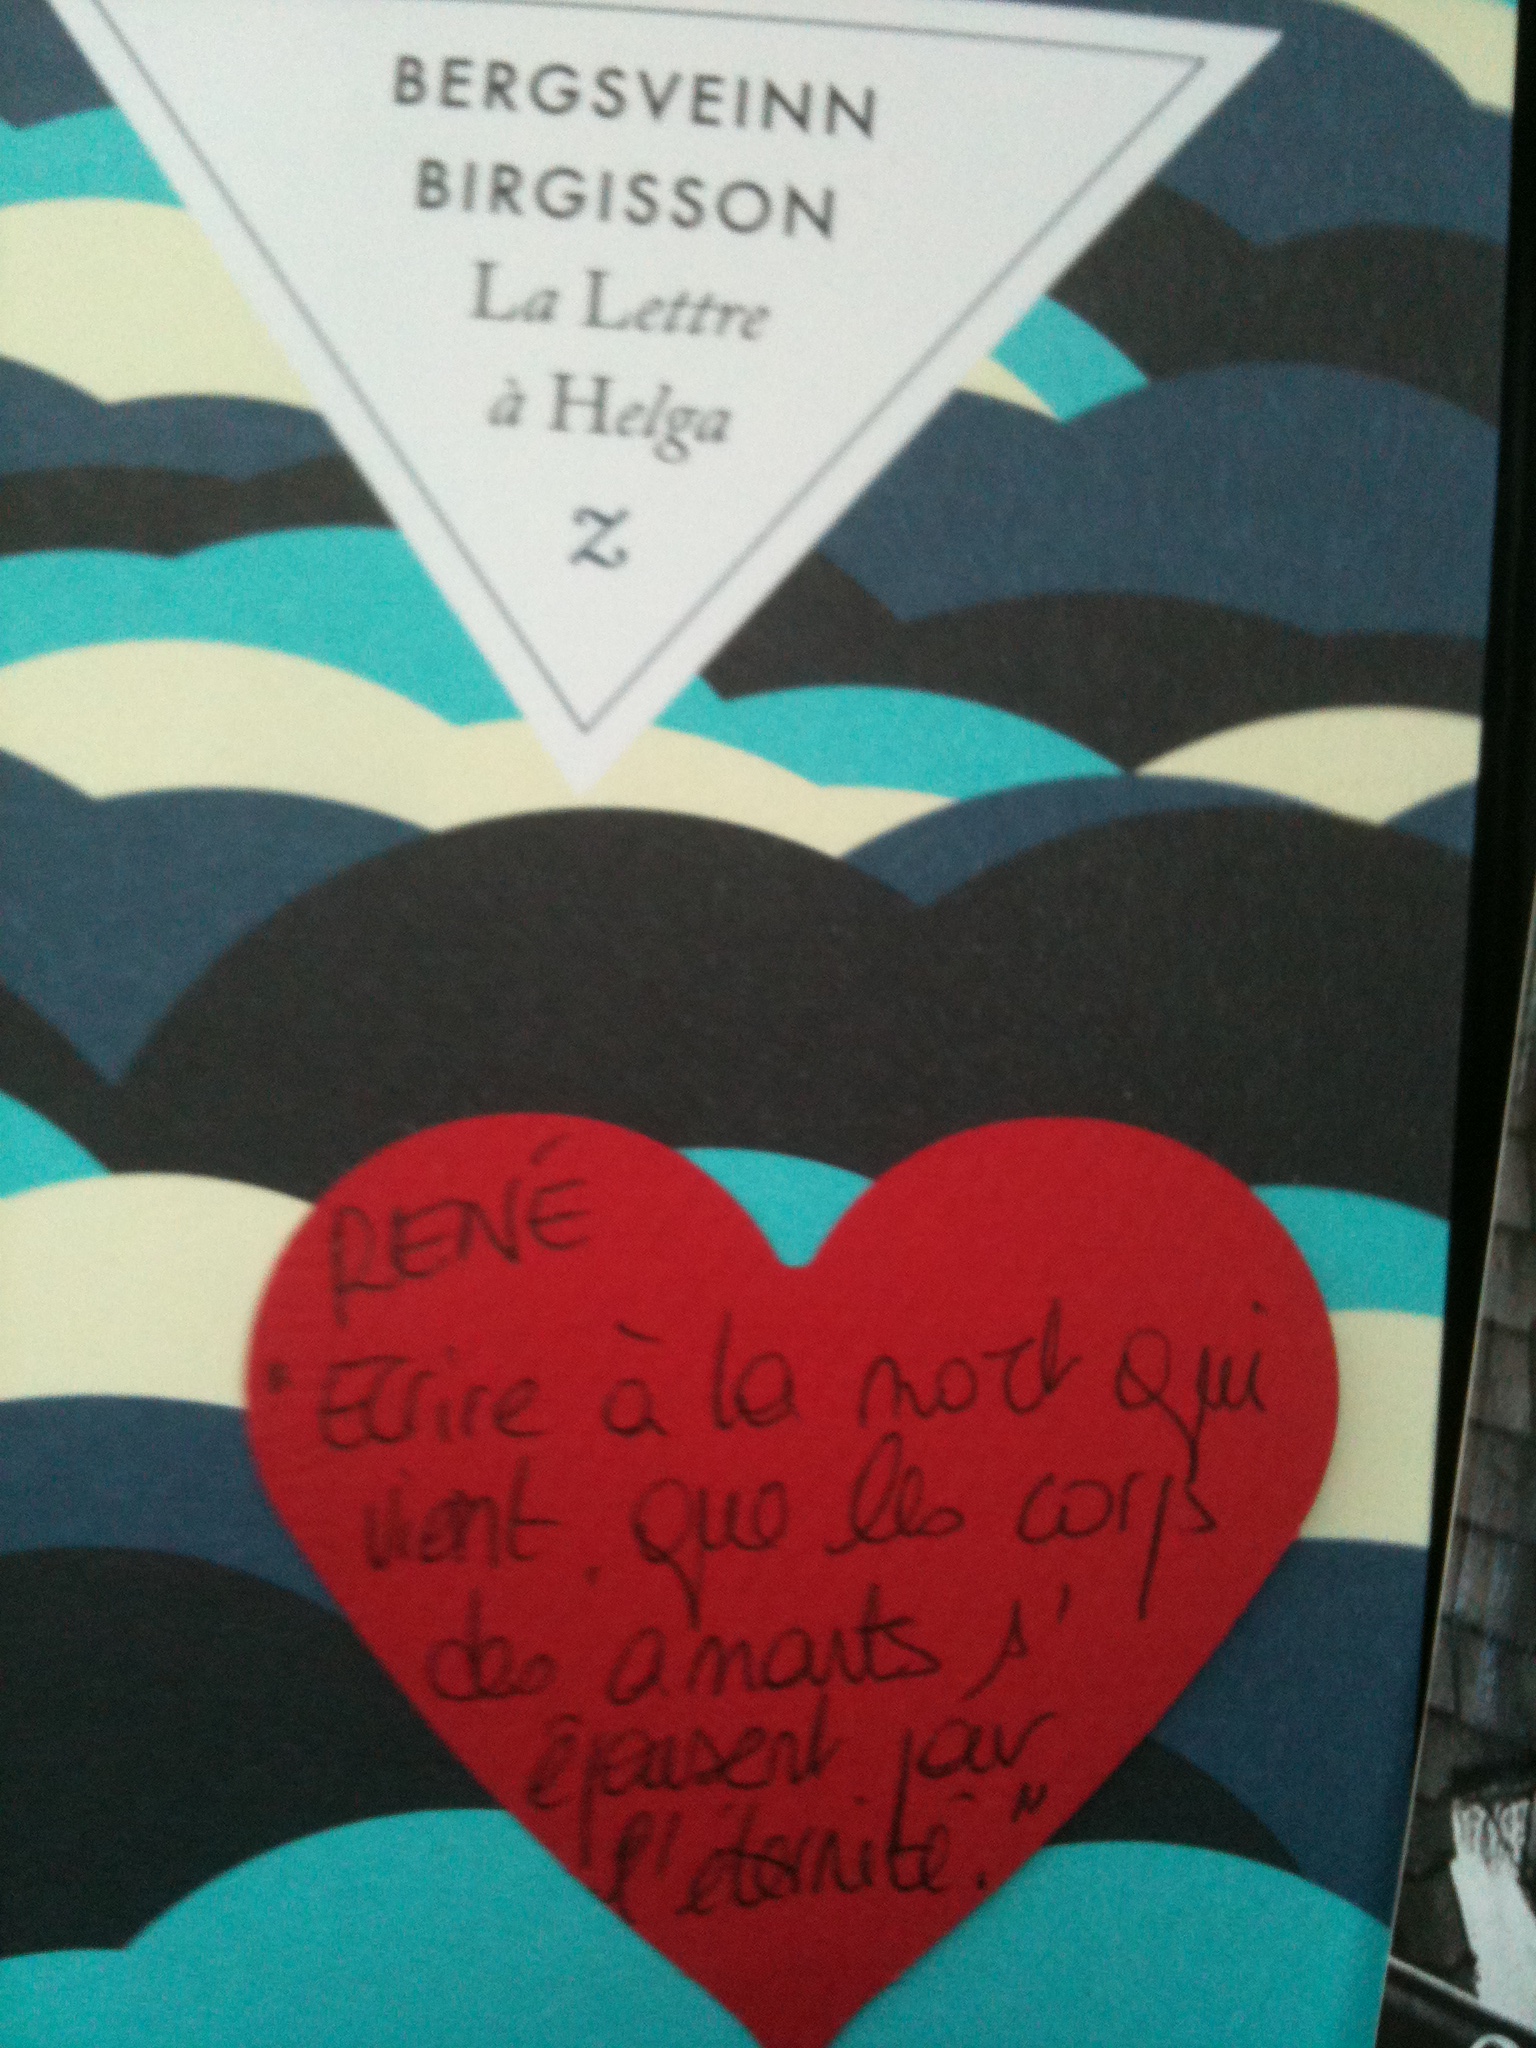 BERGSVEINN
BIRGISSON
La Lettre
à Helga
Z
RENÉ
"Ecrire à la mort qui
vient, que les corps
des amants s'
épousent par
l'éternité."